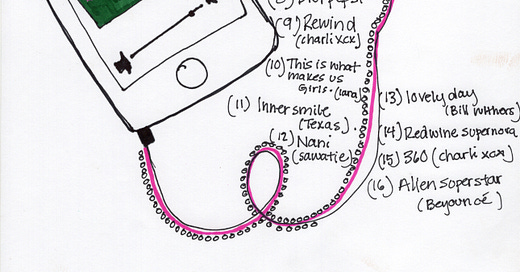 (9) Rewind
(charli xcx)
(10) This is what
makes us
girls. (lana)
(11) Inner smile
(Texas)
(12) Nani
(sawatie)
(13) lovely day
(Bill withers)
(14) Redwine supernova
(15) 360 (charli xcx)
(16) Alien superstar
(Beyouncé)